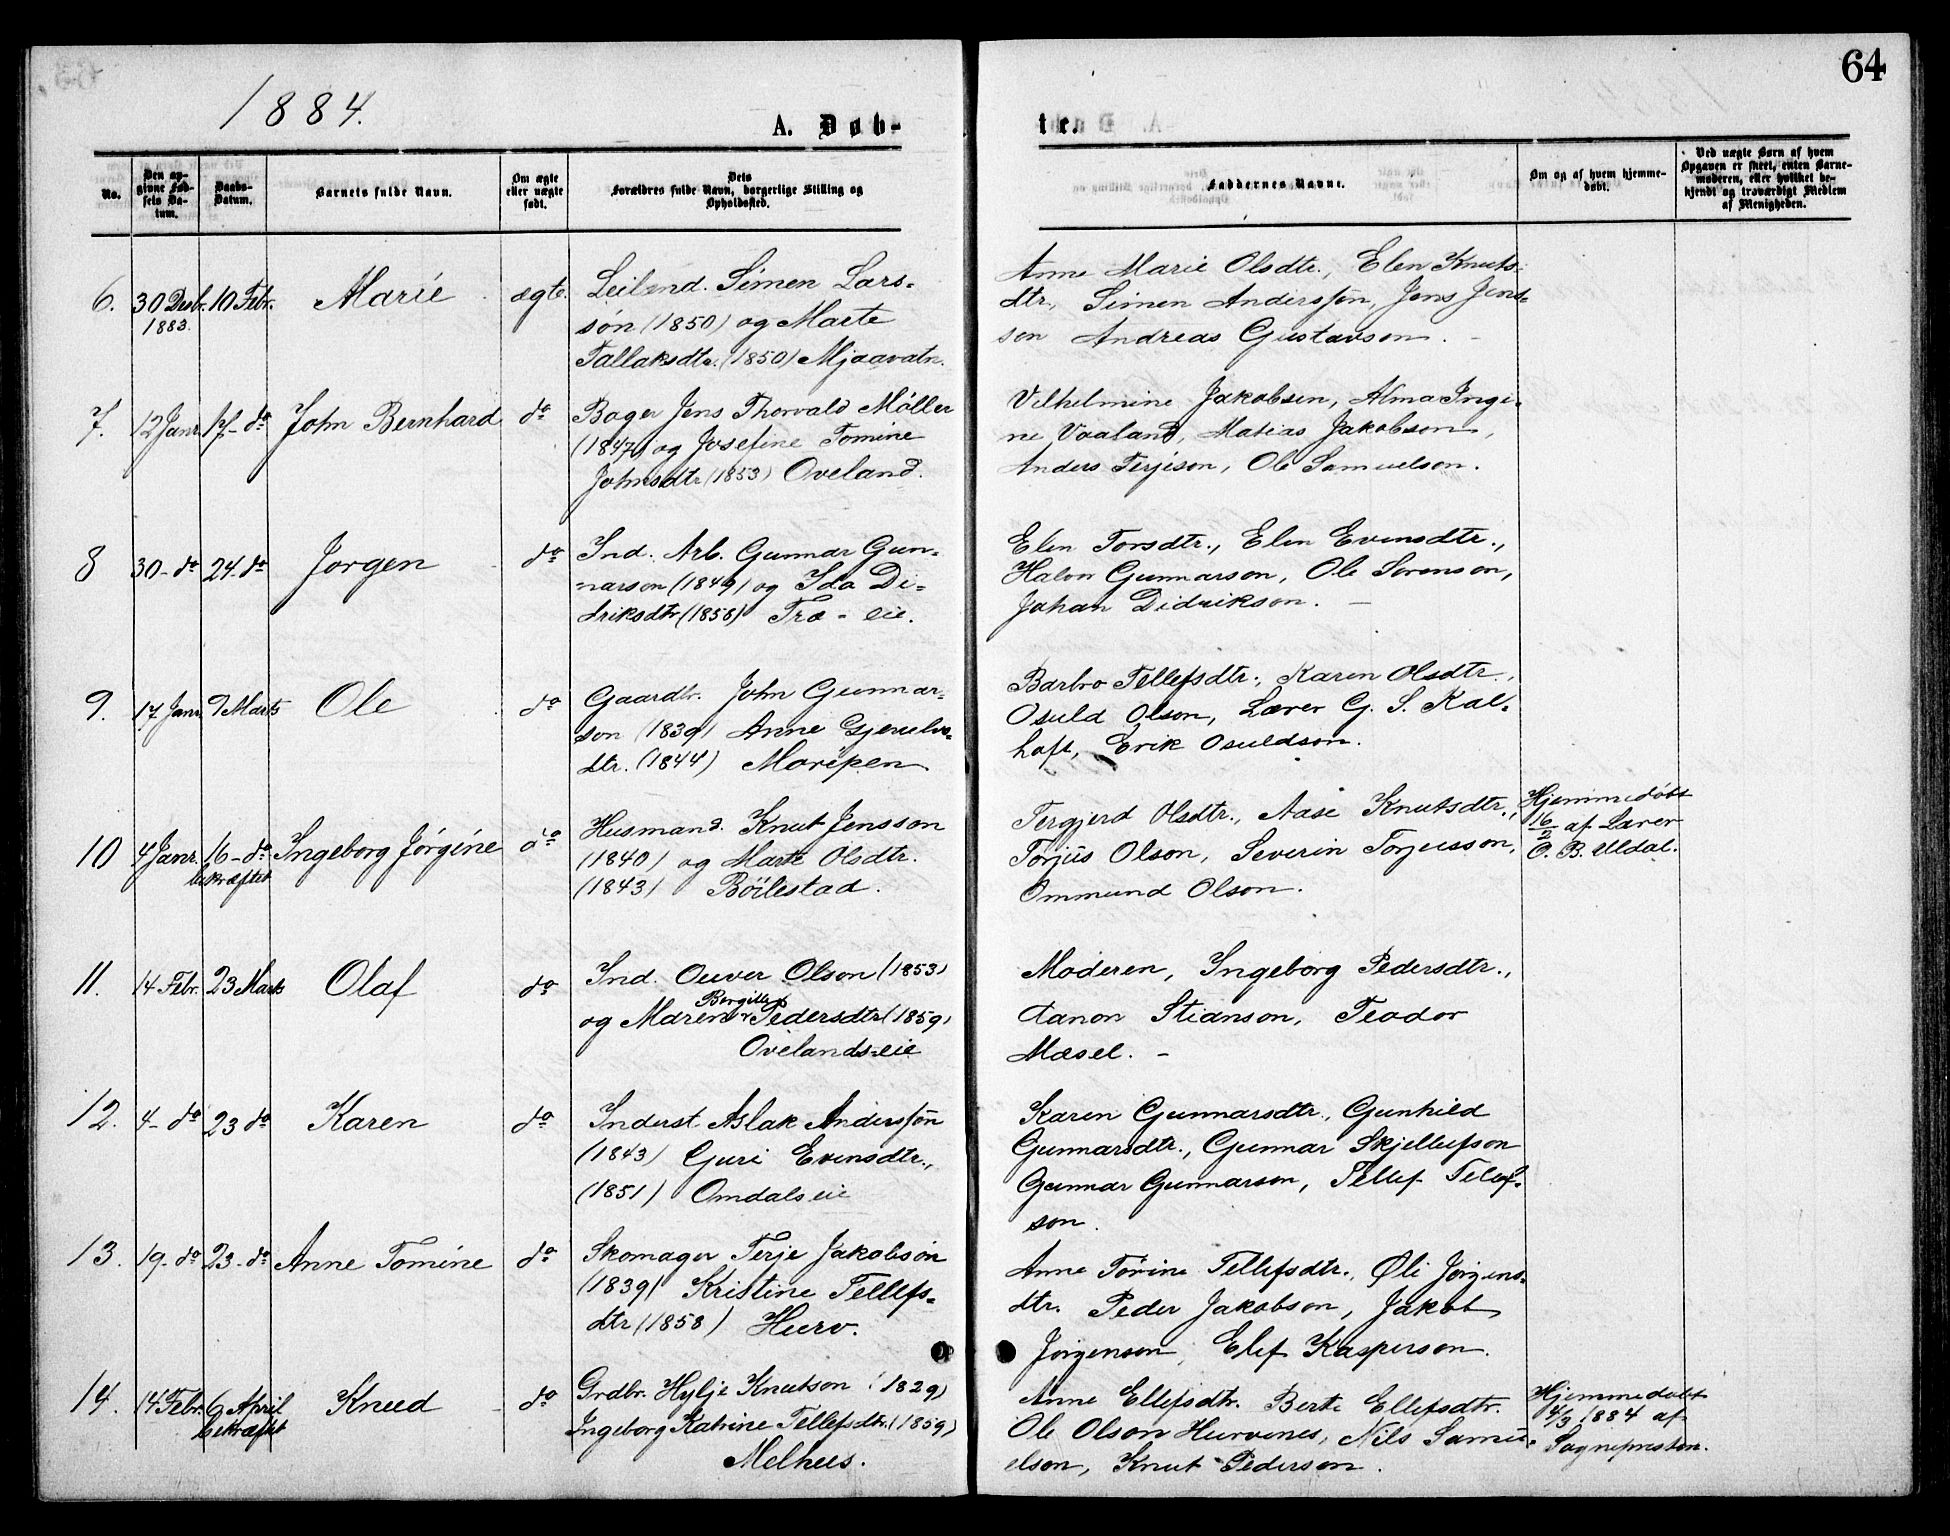 64
1884.
A. Døb-
ter.
No.
Den opgivne Fødsels Datum.
Daabs-Datum.
Barnets fulde Navn.
Om ægte eller uægte født.
Dets Forældres fulde Navn, borgerlige Stilling og Opholdssted.
Faddernes Navne.
Om og af hvem hjemmedøbt.
Ved uægte Børn af hvem Opgaven er skeet, enten Barnemoderen, eller hvilket bekjendt og troværdigt Medlem af Menigheden.
6. 30 Decbr. 10 Febr. Marie ægte. Leilænd. Simen Lars-
1883.
søn (1850) og Marte
Tallaksdtr. (1850) Mjaavatn.
Anne Marie Olsdtr., Elen Knuts-
dtr., Simen Anderssøn, Jens Jens-
son Andreas Gustavson.
7. 12 Janr. 17- do John Bernhard do Bager Jens Thorvald Møller
(1847) og Josefine Tomine
Johnsdtr (1853) Oveland.
Vilhelmine Jakobsen, Alma Ingi-
ne Vaaland, Matias Jakobson,
Anders Terjeson, Ole Samuelson.
8 30- do 24- do Jørgen do Ind. Arb. Gunnar Gun-
narson (1849) og Ida Di-
driksdtr (1858) Træ-eie.
Elen Torsdtr., Elen Evensdtr.,
Halvor Gunnarson, Ole Sørenson,
Johan Didrikson. —
9. 17 Janr. 9 Marts Ole do Gaardbr. John Gunnar-
son (1839) Anne Gjeruls-
dtr. (1844) Moripen
Barbro Tellefsdtr., Karen Olsdtr.,
Osuld Olson, Lærer G. S. Kal-
hoft, Erik Osuldson.
10 4 Janr. 16- do Ingeborg Jørgine do Husmand. Knut Jensson
bekræftet
(1840) og Marte Olsdtr.
(1843) Bøilestad.
Tergjerd Olsdtr., Aase Knutsdtr.,
Torjus Olson, Severin Torjusson,
Ommund Olson.
Hjemmedøbt
16/2 af Lærer
O. B. Uldal.
11. 14 Febr. 23 Marts Olaf do Ind. Ouver Olson (1853)
Borgille
og Maren Pedersdtr (1859)
Ovelands-eie
Moderen, Ingeborg Pedersdtr.,
Aanon Stianson, Teodor
Mæsel. -
12. 4- do 23 do Karen do Inderst. Aslak Anderssøn
(1843) Guri Evensdtr.,
(1851) Omdals eie
Karen Gunnarsdtr., Gunhild
Gunnarsdtr., Gunnar Skjellufson
Gunnar Gunnarson, Tellef Tellef-
son.
13. 19- do 23- do Anne Tomine do Skomager Terje Jakobsøn
(1839) Kristine Tellefs-
dtr (1858) Hurv.
Anne Torine Tellefsdtr., Oli Jørgens-
dtr. Peder Jakobson, Jakob
Jørgenson, Elef Kasperson.
14. 14 Febr. 6 April Knud do Grdbr. Hylje Knutson (1829)
bekræftet
Ingeborg Katrine Tellefsdtr. (1859)
Melhus.
Anne Ellefsdtr. Berte Ellefsdtr.
Ole Olson Hurvenes, Nils Samu-
elson, Knut Pederson.
Hjemmedøbt
4/3 1884 af
Sognepresten.